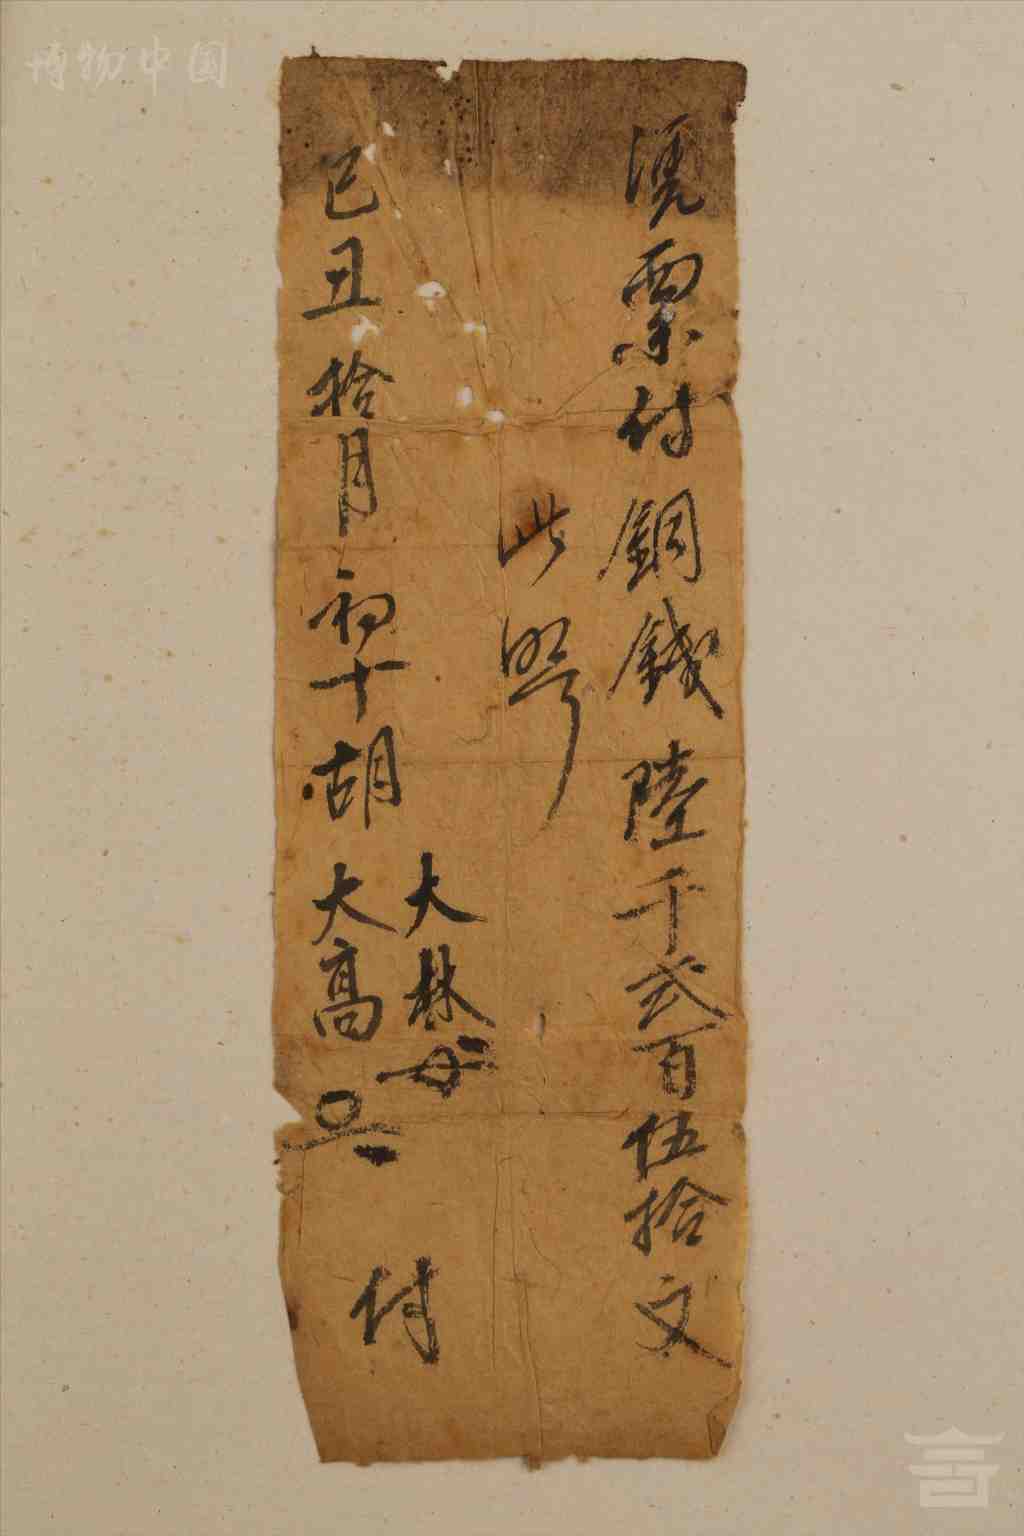 凴票付銅錢陸千弍百伍拾文
此照
己丑拾月初十胡
大林
大高
付
博物中国